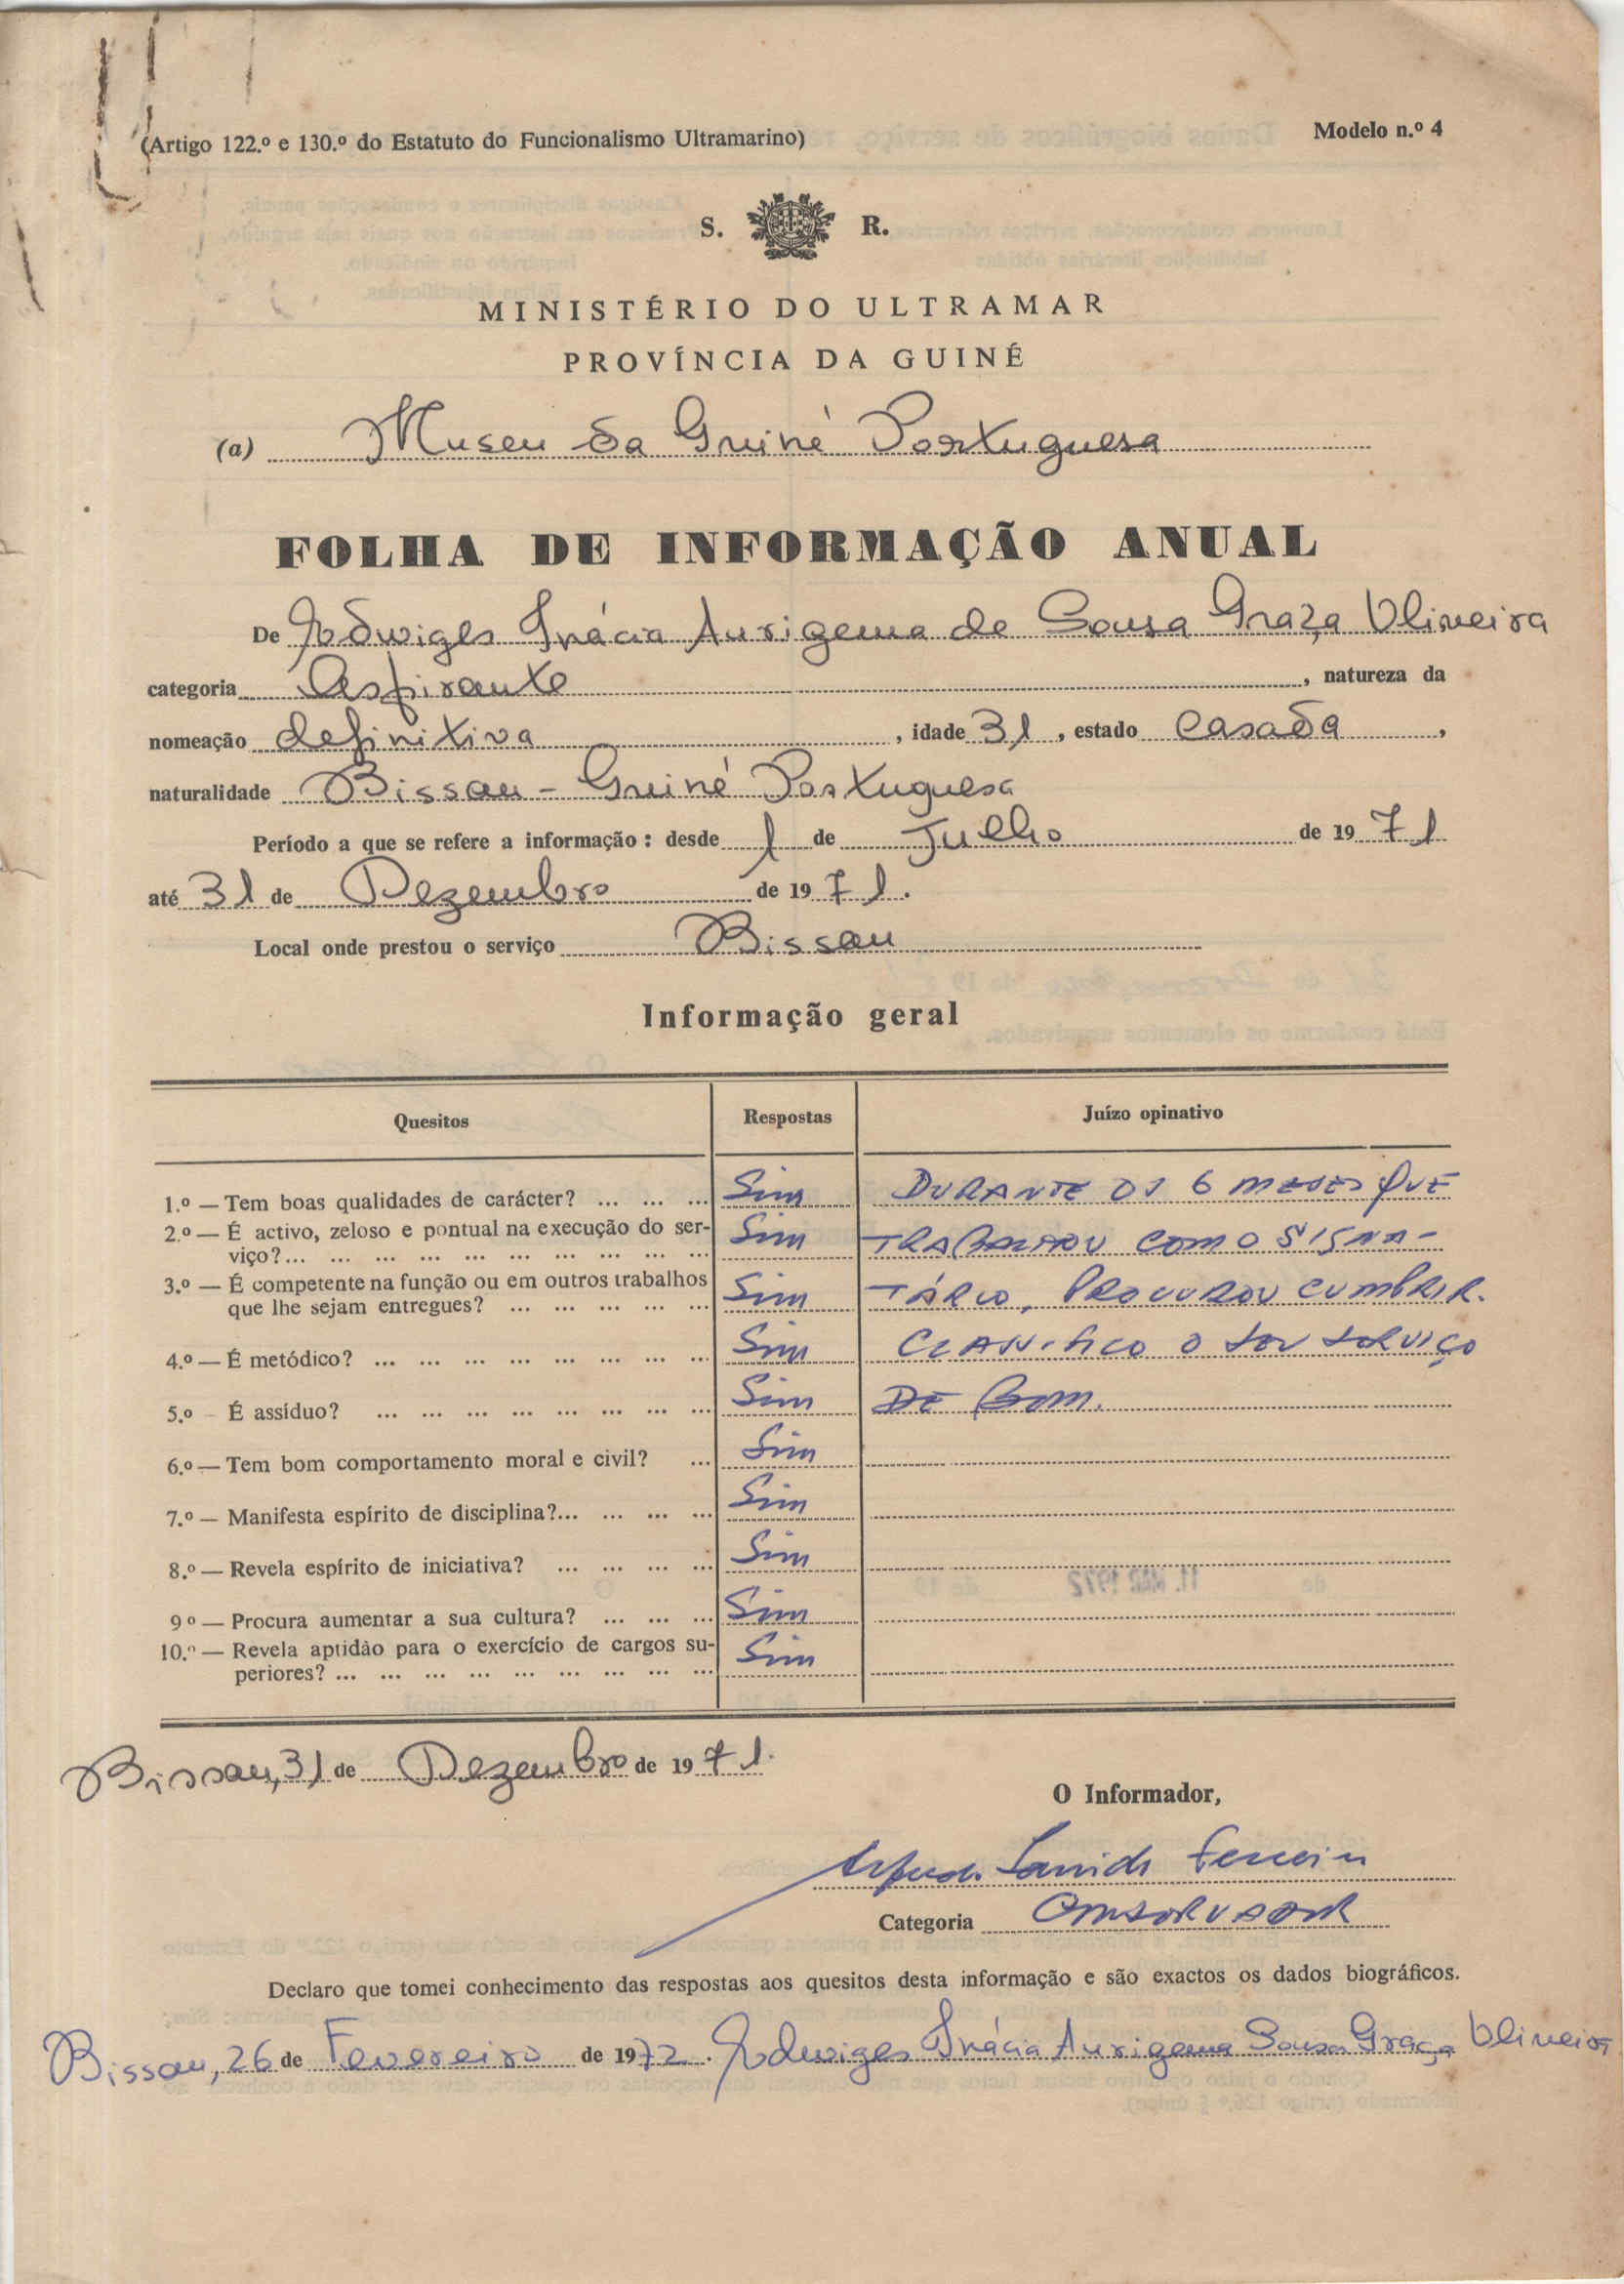 (Artigo 122.º e 130.º do Estatuto do Funcionalismo Ultramarino) Modelo n.º 4
S. R.
MINISTÉRIO DO ULTRAMAR
PROVÍNCIA DA GUINÉ
(a) Museu da Guiné Portuguesa
FOLHA DE INFORMAÇÃO ANUAL
De Edwiges Inácia Aurigema de Sousa Graça Oliveira
categoria Aspirante , natureza da
nomeação definitiva , idade 31 , estado casada ,
naturalidade Bissau - Guiné Portuguesa
Período a que se refere a informação : desde 1 de Julho de 19 71
até 31 de Dezembro de 19 71.
Local onde prestou o serviço Bissau
Informação geral
Quesitos Respostas Juízo opinativo
1.º — Tem boas qualidades de carácter? ... ... ... Sim DURANTE OS 6 MESES QUE
2.º — É activo, zeloso e pontual na execução do ser-
viço?... ... ... ... ... ... ... ... ... ... Sim TRABALHOU COMO SIGNA-
3.º — É competente na função ou em outros trabalhos
que lhe sejam entregues? ... ... ... ... ... Sim TÁRIO, PROCUROU CUMPRIR.
4.º — É metódico? ... ... ... ... ... ... ... ... Sim CLASSIFICO O SEU SERVIÇO
5.º - É assíduo? ... ... ... ... ... ... ... ... Sim DE BOM.
6.º — Tem bom comportamento moral e civil? ... Sim
7.º — Manifesta espírito de disciplina?... ... ... ... Sim
8.º — Revela espírito de iniciativa? ... ... ... ... Sim
9º — Procura aumentar a sua cultura? ... ... ... Sim
10.º — Revela aptidão para o exercício de cargos su-
periores? ... ... ... ... ... ... ... ... ... Sim
Bissau, 31 de Dezembro de 19 71.
O Informador,
Ferreira
Categoria CONSERVADOR
Declaro que tomei conhecimento das respostas aos quesitos desta informação e são exactos os dados biográficos.
Bissau, 26 de Fevereiro de 1972. Edwiges Inácia Aurigema Sousa Graça Oliveira